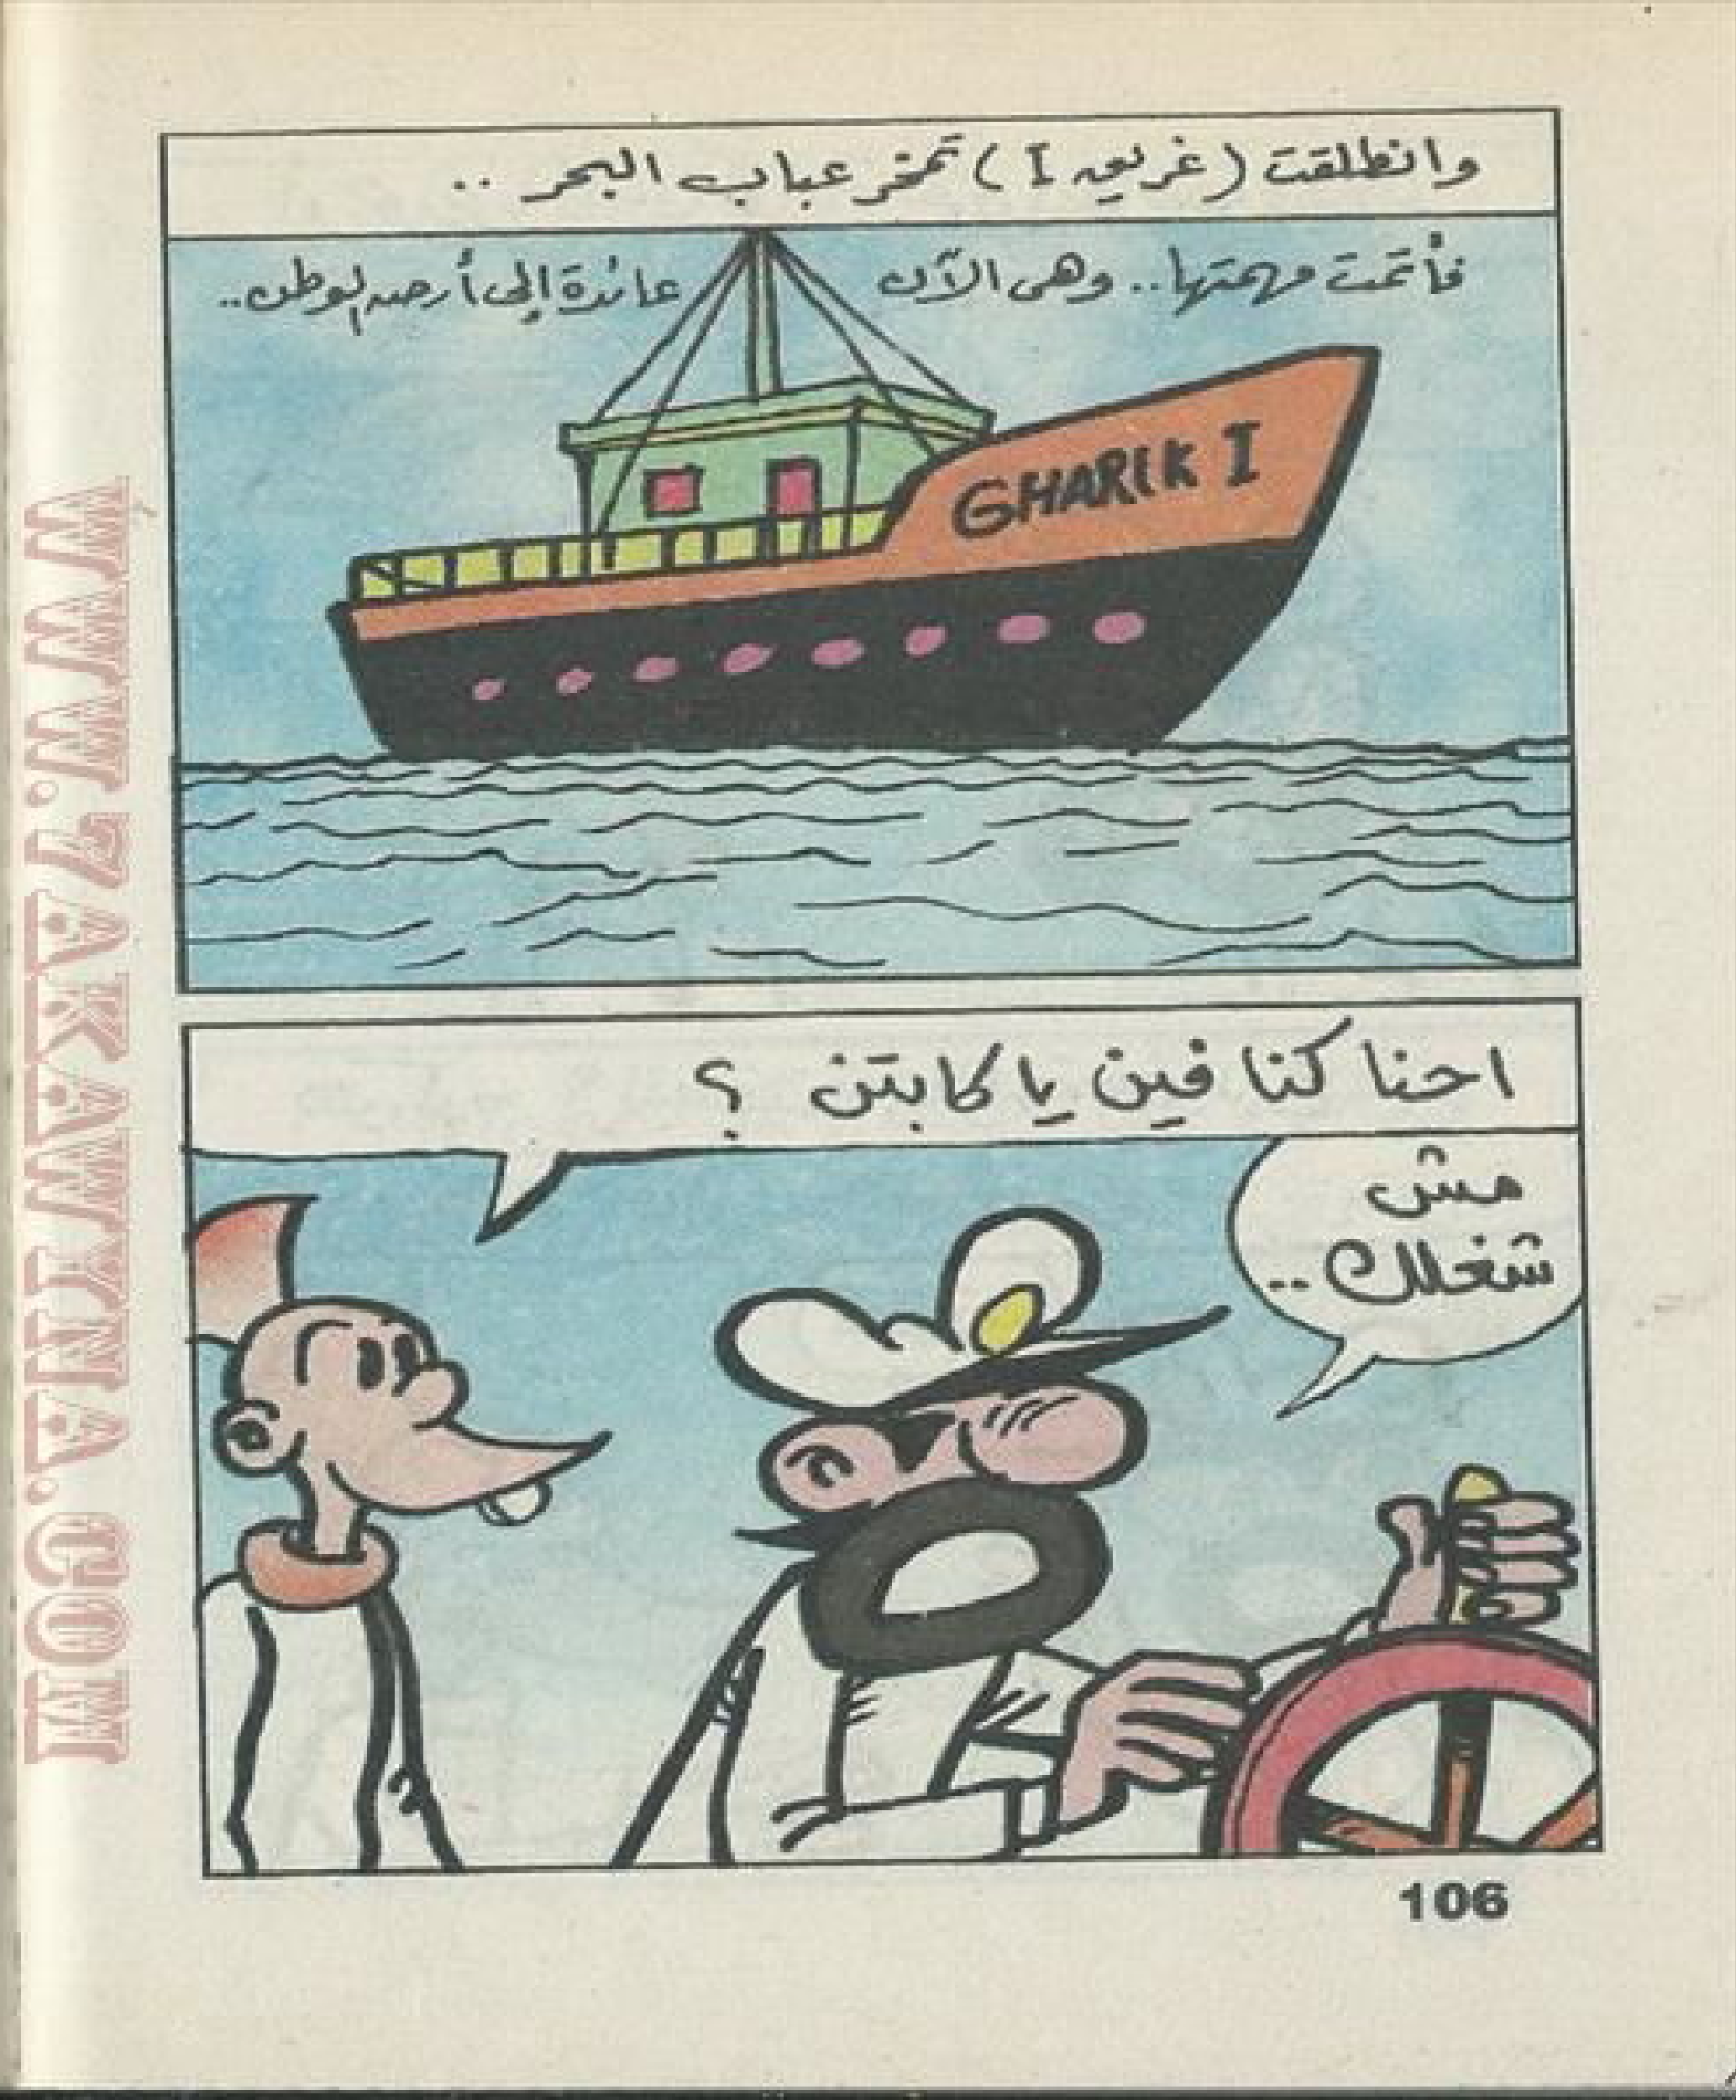 وانطلقت (غريق I) تمخر عباب البحر ..
فأتمت مهمتها .. وهى الآن عائدة إلى أرض الوطن ..
GHARIK I
احنا كنا فين يا كابتن ؟
مش
شغلك ..
106
WWW.ZAKAWINA.COM